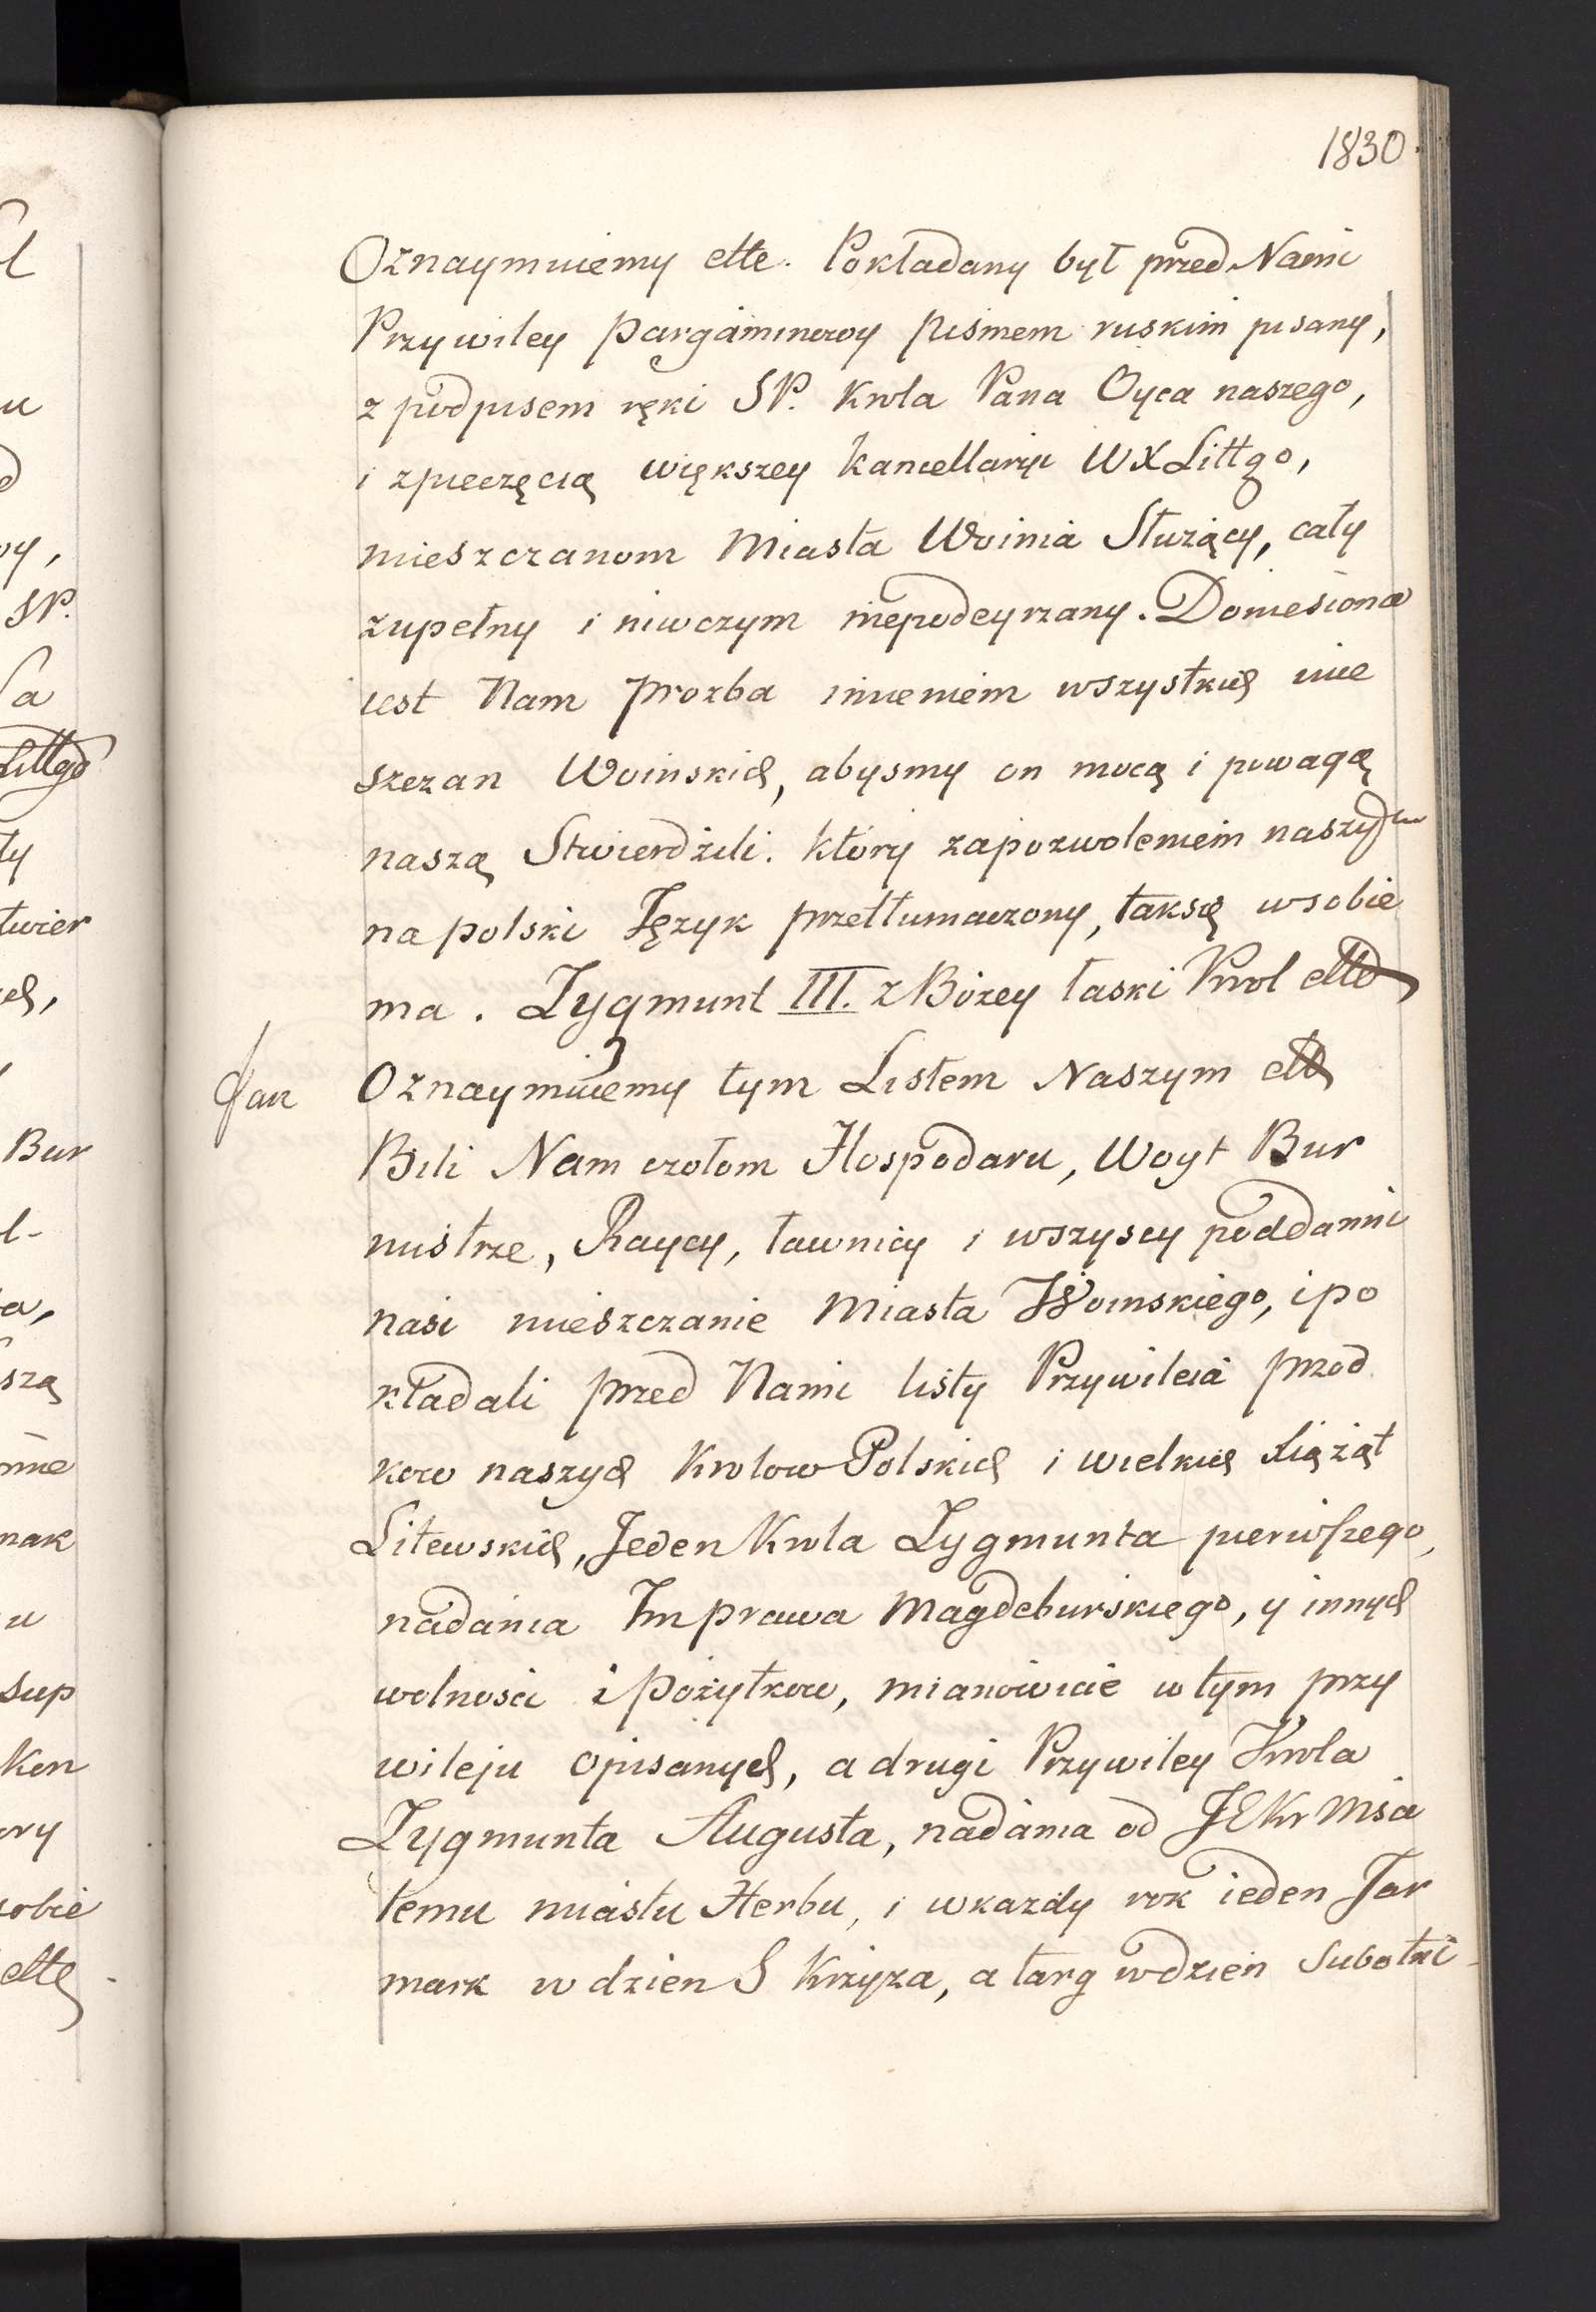 1830.
Oznaymuiemy ettc. Pokładany był przed Nami
Przywiley pargaminowy pismem ruskim pisany,
z podpisem ręki SP. Krola Pana Oyca naszego,
i zpieczęcią większey kancellaryi WXLittgo,
mieszczanom Miasta Woinia Służący, cały
zupełny i niwczym niepodeyrzany. Doniesiona
iest Nam prozba imieniem wszystkich mie
szczan Woinskich, abysmy on mocą i powagą
naszą Stwierdzili. który zapozwoleniem naszym
na polski Język przetłumaczony, taksię wsobie
ma. Zygmunt III. z Bożey łaski Krol ettc
Jan
Oznaymuiemy tym Listem Naszym ettc
Bili Nam czołom Hospodaru, Woyt Bur
mistrze, Raycy, ławnicy i wszyscy poddanni
nasi mieszczanie Miasta Woinskiego, i po
kładali przed Nami listy Przywileia przod
kow naszych Krolow Polskich i wielkich Xiążąt
Litewskich, Jeden Krola Zygmunta pierwszego,
nadania Im prawa Magdeburskiego, y innych
wolnosci i pożytkow, mianowicie w tym przy
wileju opisanych, a drugi Przywiley Krola
Zygmunta Augusta, nadania od JEKr Msci
temu miastu Herbu, i wkazdy rok ieden Jar
mark w dzien S Krzyza, a targ wdzien Subotni